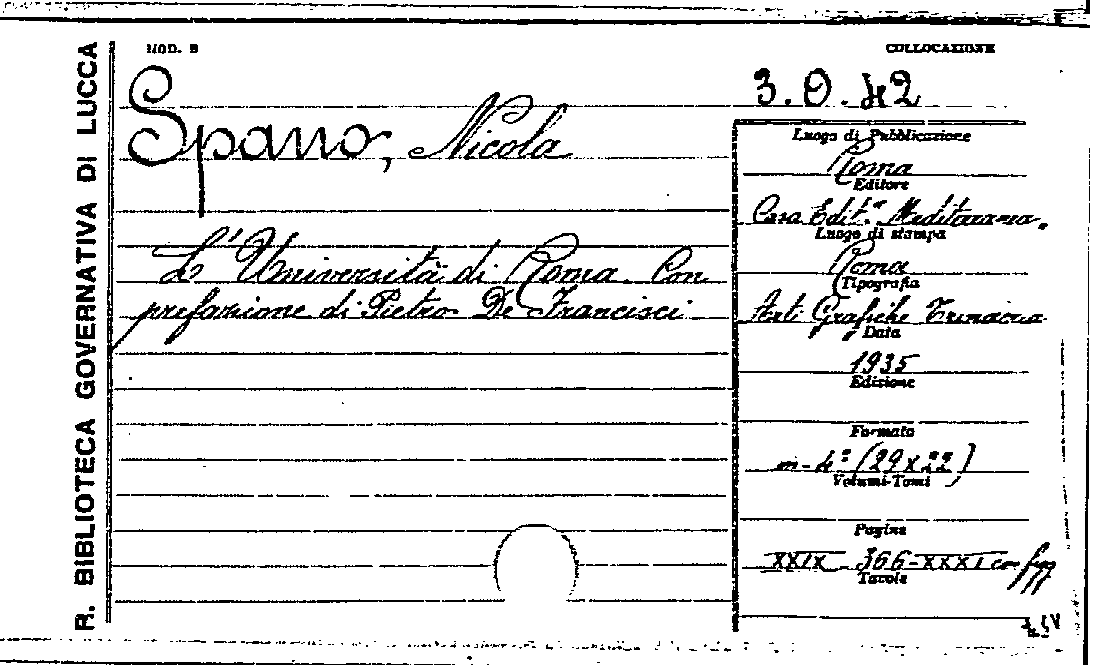 R. BIBLIOTECA GOVERNATIVA DI LUCCA
MOD. B
COLLOCAZIONE
3.O.42
Spano, Nicola
L'Università di Roma. Con
prefazione di Pietro De Francisci
Luogo di Pubblicazione
Roma
Editore
Casa Edit.ce Mediterranea.
Luogo di stampa
Roma
Tipografia
Arti Grafiche Trinacria
Data
1935
Edizione
Formato
in-4° (29x22)
Volumi-Tomi
Pagine
XXIX-366-XXXI con figg
Tavole